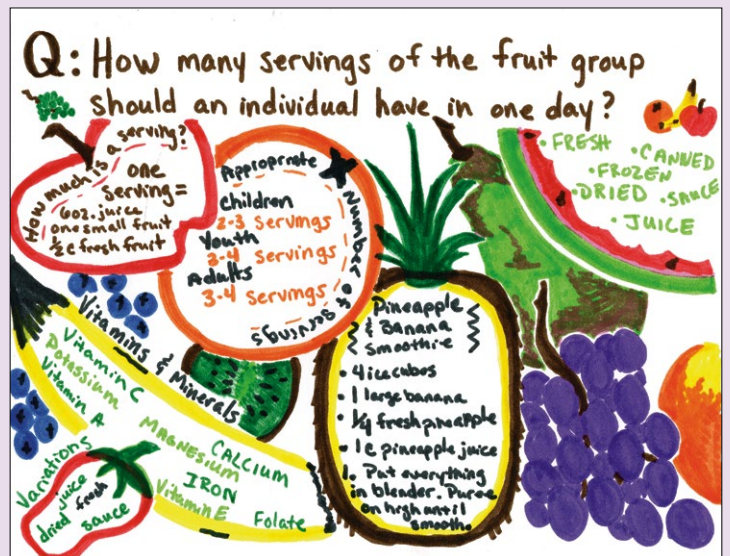 Q: How many servings of the fruit group
should an individual have in one day?
How much is a serving?
one
serving=
6oz. juice
one small fruit
½ c fresh fruit
Appropriate Number of servings
Children
2-3 Servings
Youth
3-4 Servings
Adults
3-4 Servings
• FRESH
• CANNED
• FROZEN
• DRIED
• SAUCE
• JUICE
Vitamins & Minerals
Vitamin C
Potassium
Vitamin A
MAGNESIUM
CALCIUM
IRON
Vitamin E
Folate
Variations
juice
fresh
dried
sauce
Pineapple
& Banana
Smoothie
• 4 ice cubes
• 1 large banana
• ¼ fresh pineapple
• 1c pineapple juice
1. Put everything
in blender. Puree
on high until
smooth.